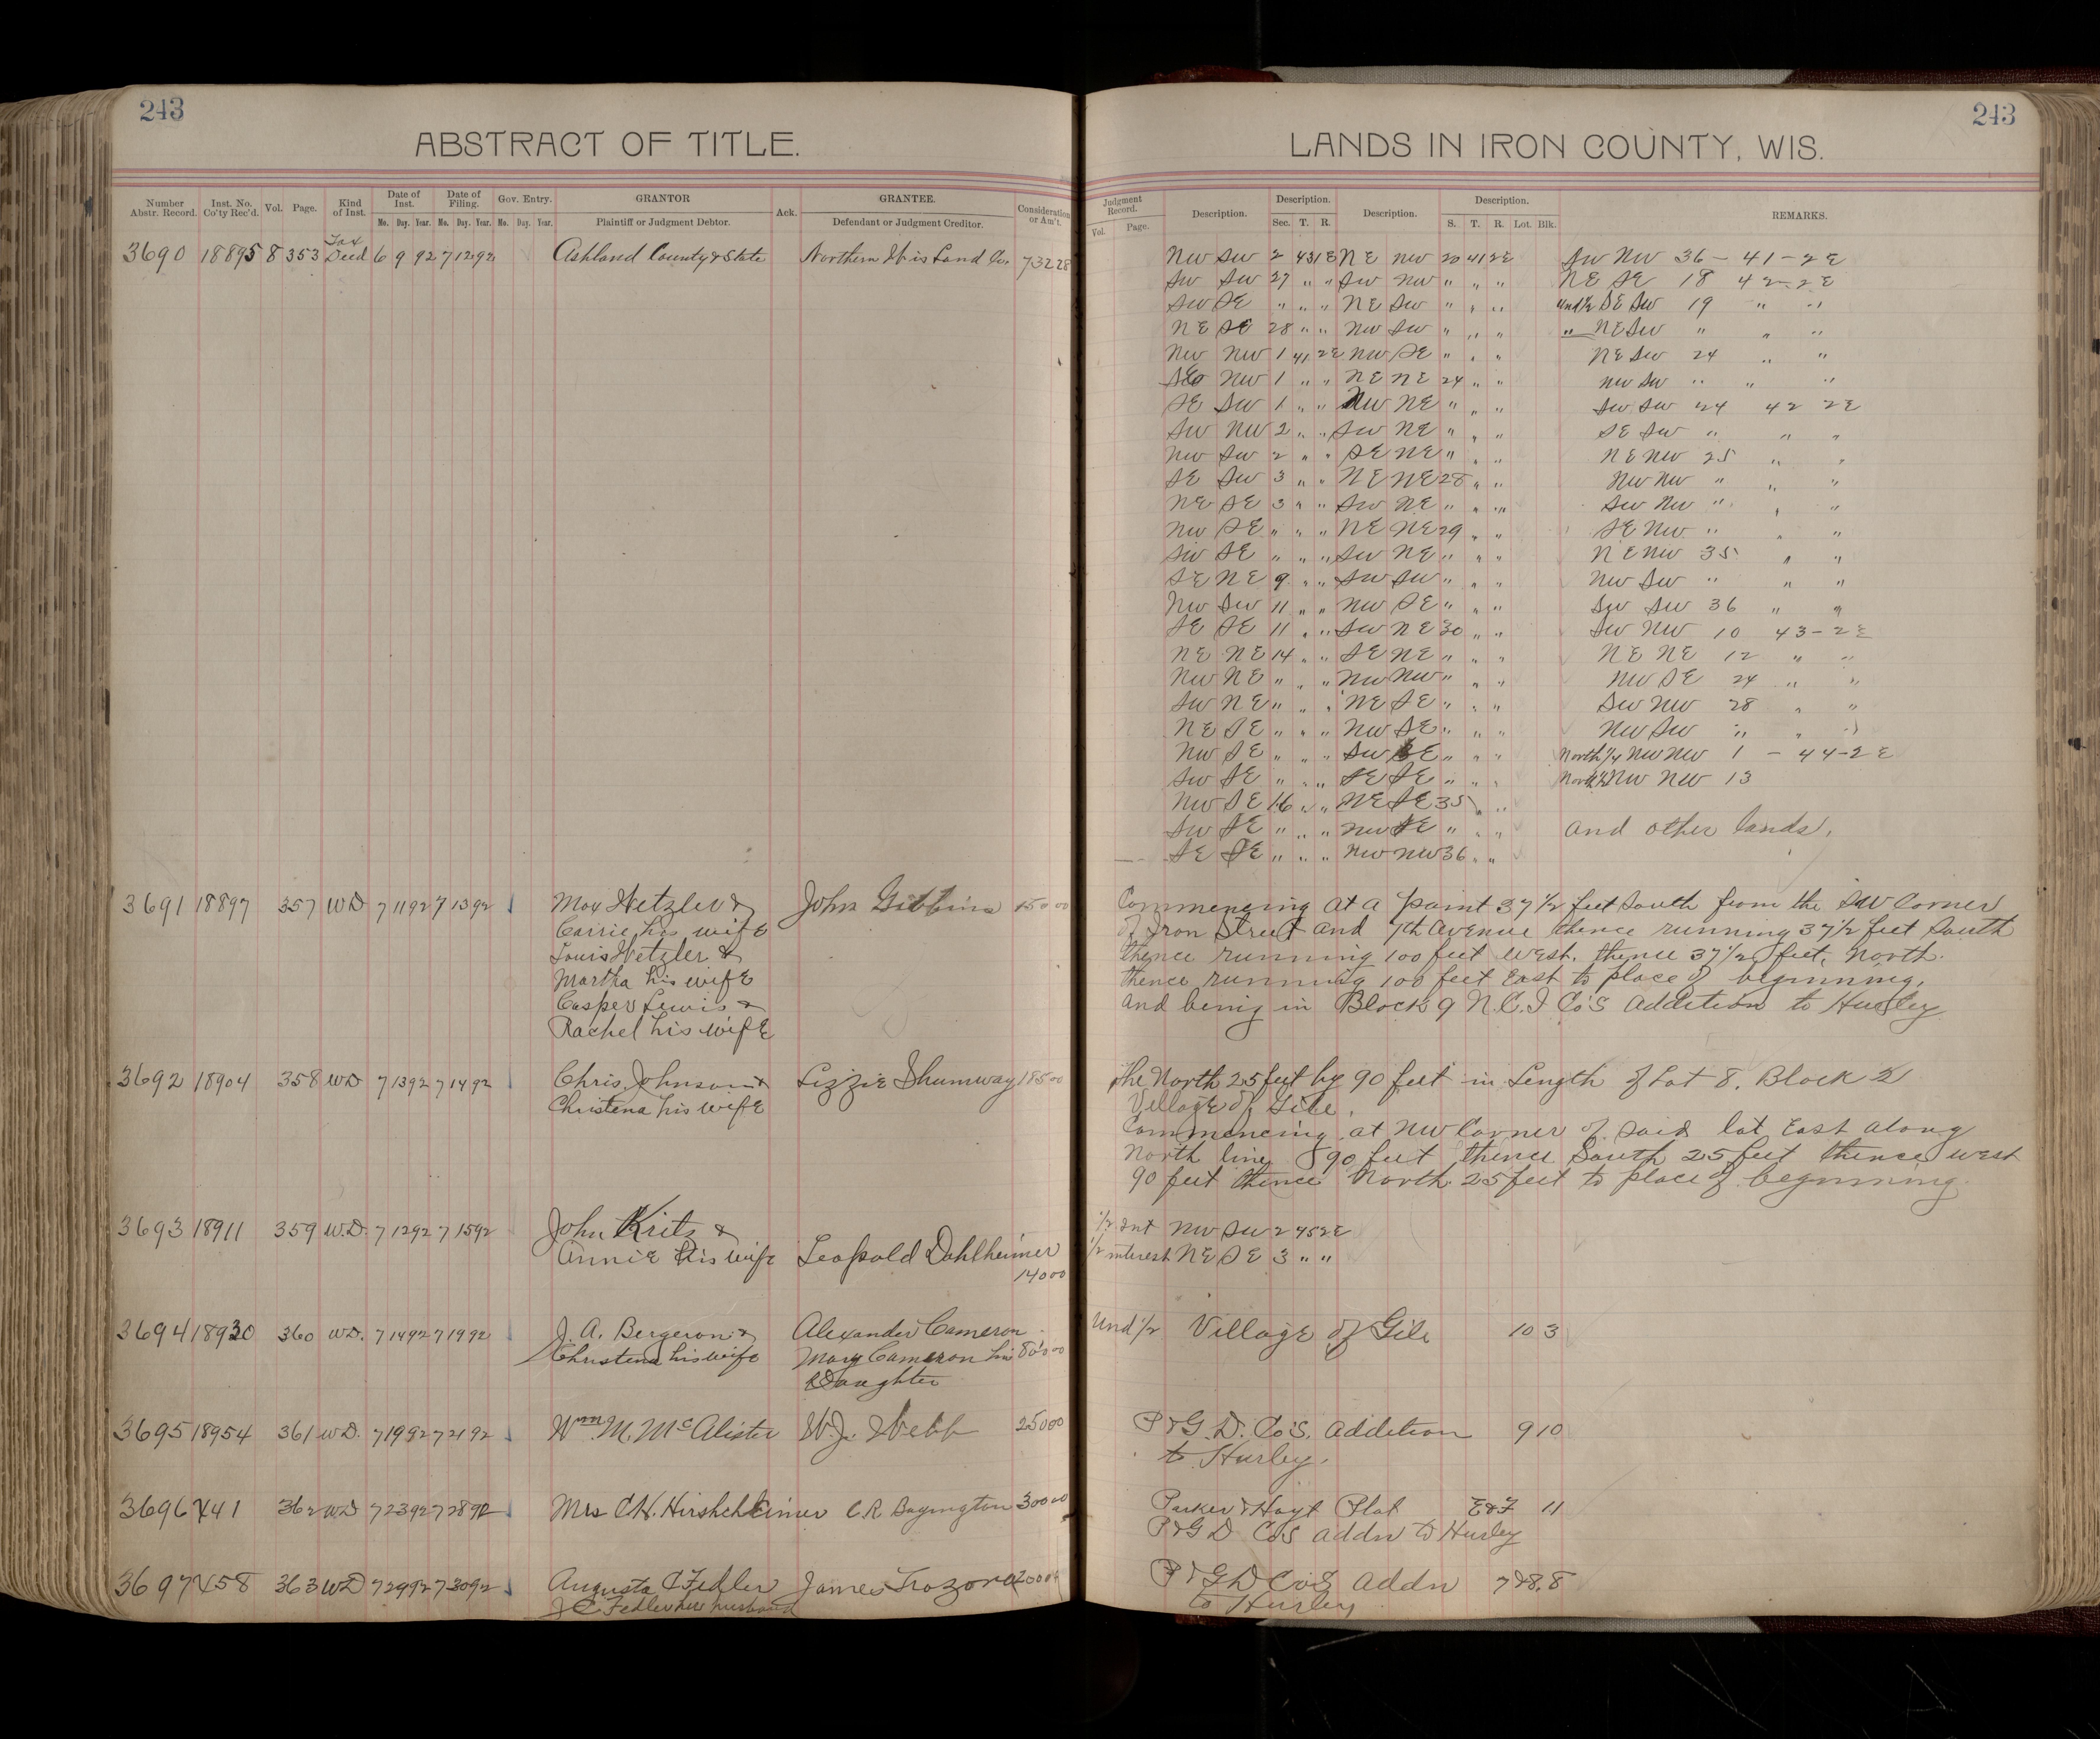 243
ABSTRACT OF TITLE.
Number Abstr. Record. Inst. No. Co'ty Rec'd. Vol. Page. Kind of Inst. Date of Inst. Date of Filing. Gov. Entry. GRANTOR Ack. GRANTEE. Consideration or Am't.
Mo. Day. Year. Mo. Day. Year. Mo. Day. Year. Plaintiff or Judgment Debtor. Defendant or Judgment Creditor.
3690 18895 8 353 Tax Deed 6 9 92 7 12 92 Ashland County & State Northern Wis Land Co. 732 28
3691 18897 357 WD 7 11 92 7 13 92 Max Hetzler & John Gibbins 150 00
Carrie his wife
Louis Hetzler &
Martha his wife
Casper Lewis &
Rachel his wife
3692 18904 358 WD 7 13 92 7 14 92 Chris Johnson & Lizzie Shumway 185 00
Christena his wife
3693 18911 359 W.D. 7 12 92 7 15 92 John Kritz &
Annie his wife Leopold Dahlheimer
140 00
3694 18930 360 WD. 7 14 92 7 19 92 J. A. Bergeron & Alexander Cameron
Christena his wife Mary Cameron his 80 00
Daughter
3695 18954 361 WD. 7 19 92 7 21 92 Wm. M. McAlister W. J. Webb 250 00
3696 441 362 WD 7 23 92 7 28 92 Mrs C. H. Hirshcheimer C. R. Boyington 300 00
3697 458 363 WD 7 29 92 7 30 92 Augusta C Fedler James Trozona 200
J C Fedler her husband
243
LANDS IN IRON COUNTY, WIS.
Judgment Record. Description. Description. Description. Description. REMARKS.
Vol. Page. Sec. T. R. S. T. R. Lot. Blk.
NW SW 2 43 1E NE NW 20 41 2E SW NW 36 - 41 - 2E
SW SW 27 " " SW NW " " " NE SE 18 42 - 2E
SW SE " " " NE SW " " " und 1/2 SE SW 19 " "
NE SE 28 " " NW SW " " " " NE SW " " "
NW NW 1 41 2E NW SE " " " NE SW 24 " "
SE NW 1 " " NE NE 24 " " NW SW " " "
SE SW 1 " " NW NE " " " SW SW 24 42 2E
SW NW 2 " " SW NE " " " SE SW " " "
NW SW 2 " " SE NE " " " NE NW 25 " "
SE SW 3 " " NE NE 28 " " NW NW " " "
NE SE 3 " " SW NE " " " SW NW " " "
NW SE " " " NE NE 29 " " SE NW " " "
SW SE " " " SW NE " " " NE NW 35 " "
SE NE 9 " " SW SW " " " NW SW " " "
NW SW 11 " " NW SE " " " SW SW 36 " "
SE SE 11 " " SW NE 30 " " SW NW 10 43 - 2E
NE NE 14 " " SE NE " " " NE NE 12 " "
NW NE " " " NW NW " " " NW SE 24 " "
SW NE " " " NE SE " " " SW NW 28 " "
NE SE " " " NW SE " " " NW SW " " "
NW SE " " " SW SE " " " North 1/4 NW NW 1 - 44 - 2E
SW SE " " " SE SE " " " North 1/2 NW NW 13
NW SE 16 " " NE SE 35 " "
SW SE " " " NW SE " " " and other lands.
SE SE " " " NW NW 36 " "
Commencing at a point 37 1/2 feet South from the SW Corner
of Iron Street and 7th Avenue thence running 37 1/2 feet South
thence running 100 feet West. thence 37 1/2 feet, North.
thence running 100 feet East to place of beginning,
and being in Block 9 N.C.I Co's Addition to Hurley
The North 25 feet by 90 feet in Length of Lot 8. Block 2
Village of Gile.
Commencing at NW Corner of said lot East along
North line 90 feet thence South 25 feet thence west
90 feet thence North 25 feet to place of beginning.
1/2 Int NW SW 2 45 2E
1/2 interest NE SE 3 " "
Und 1/2 Village of Gile 10 3
P & G. D. Co's. Addition 9 10
to Hurley.
Parker & Hoyt Plat E&F 11
P & G D Co's addn to Hurley
P & G D Co's Addn 7&8. 8
to Hurley